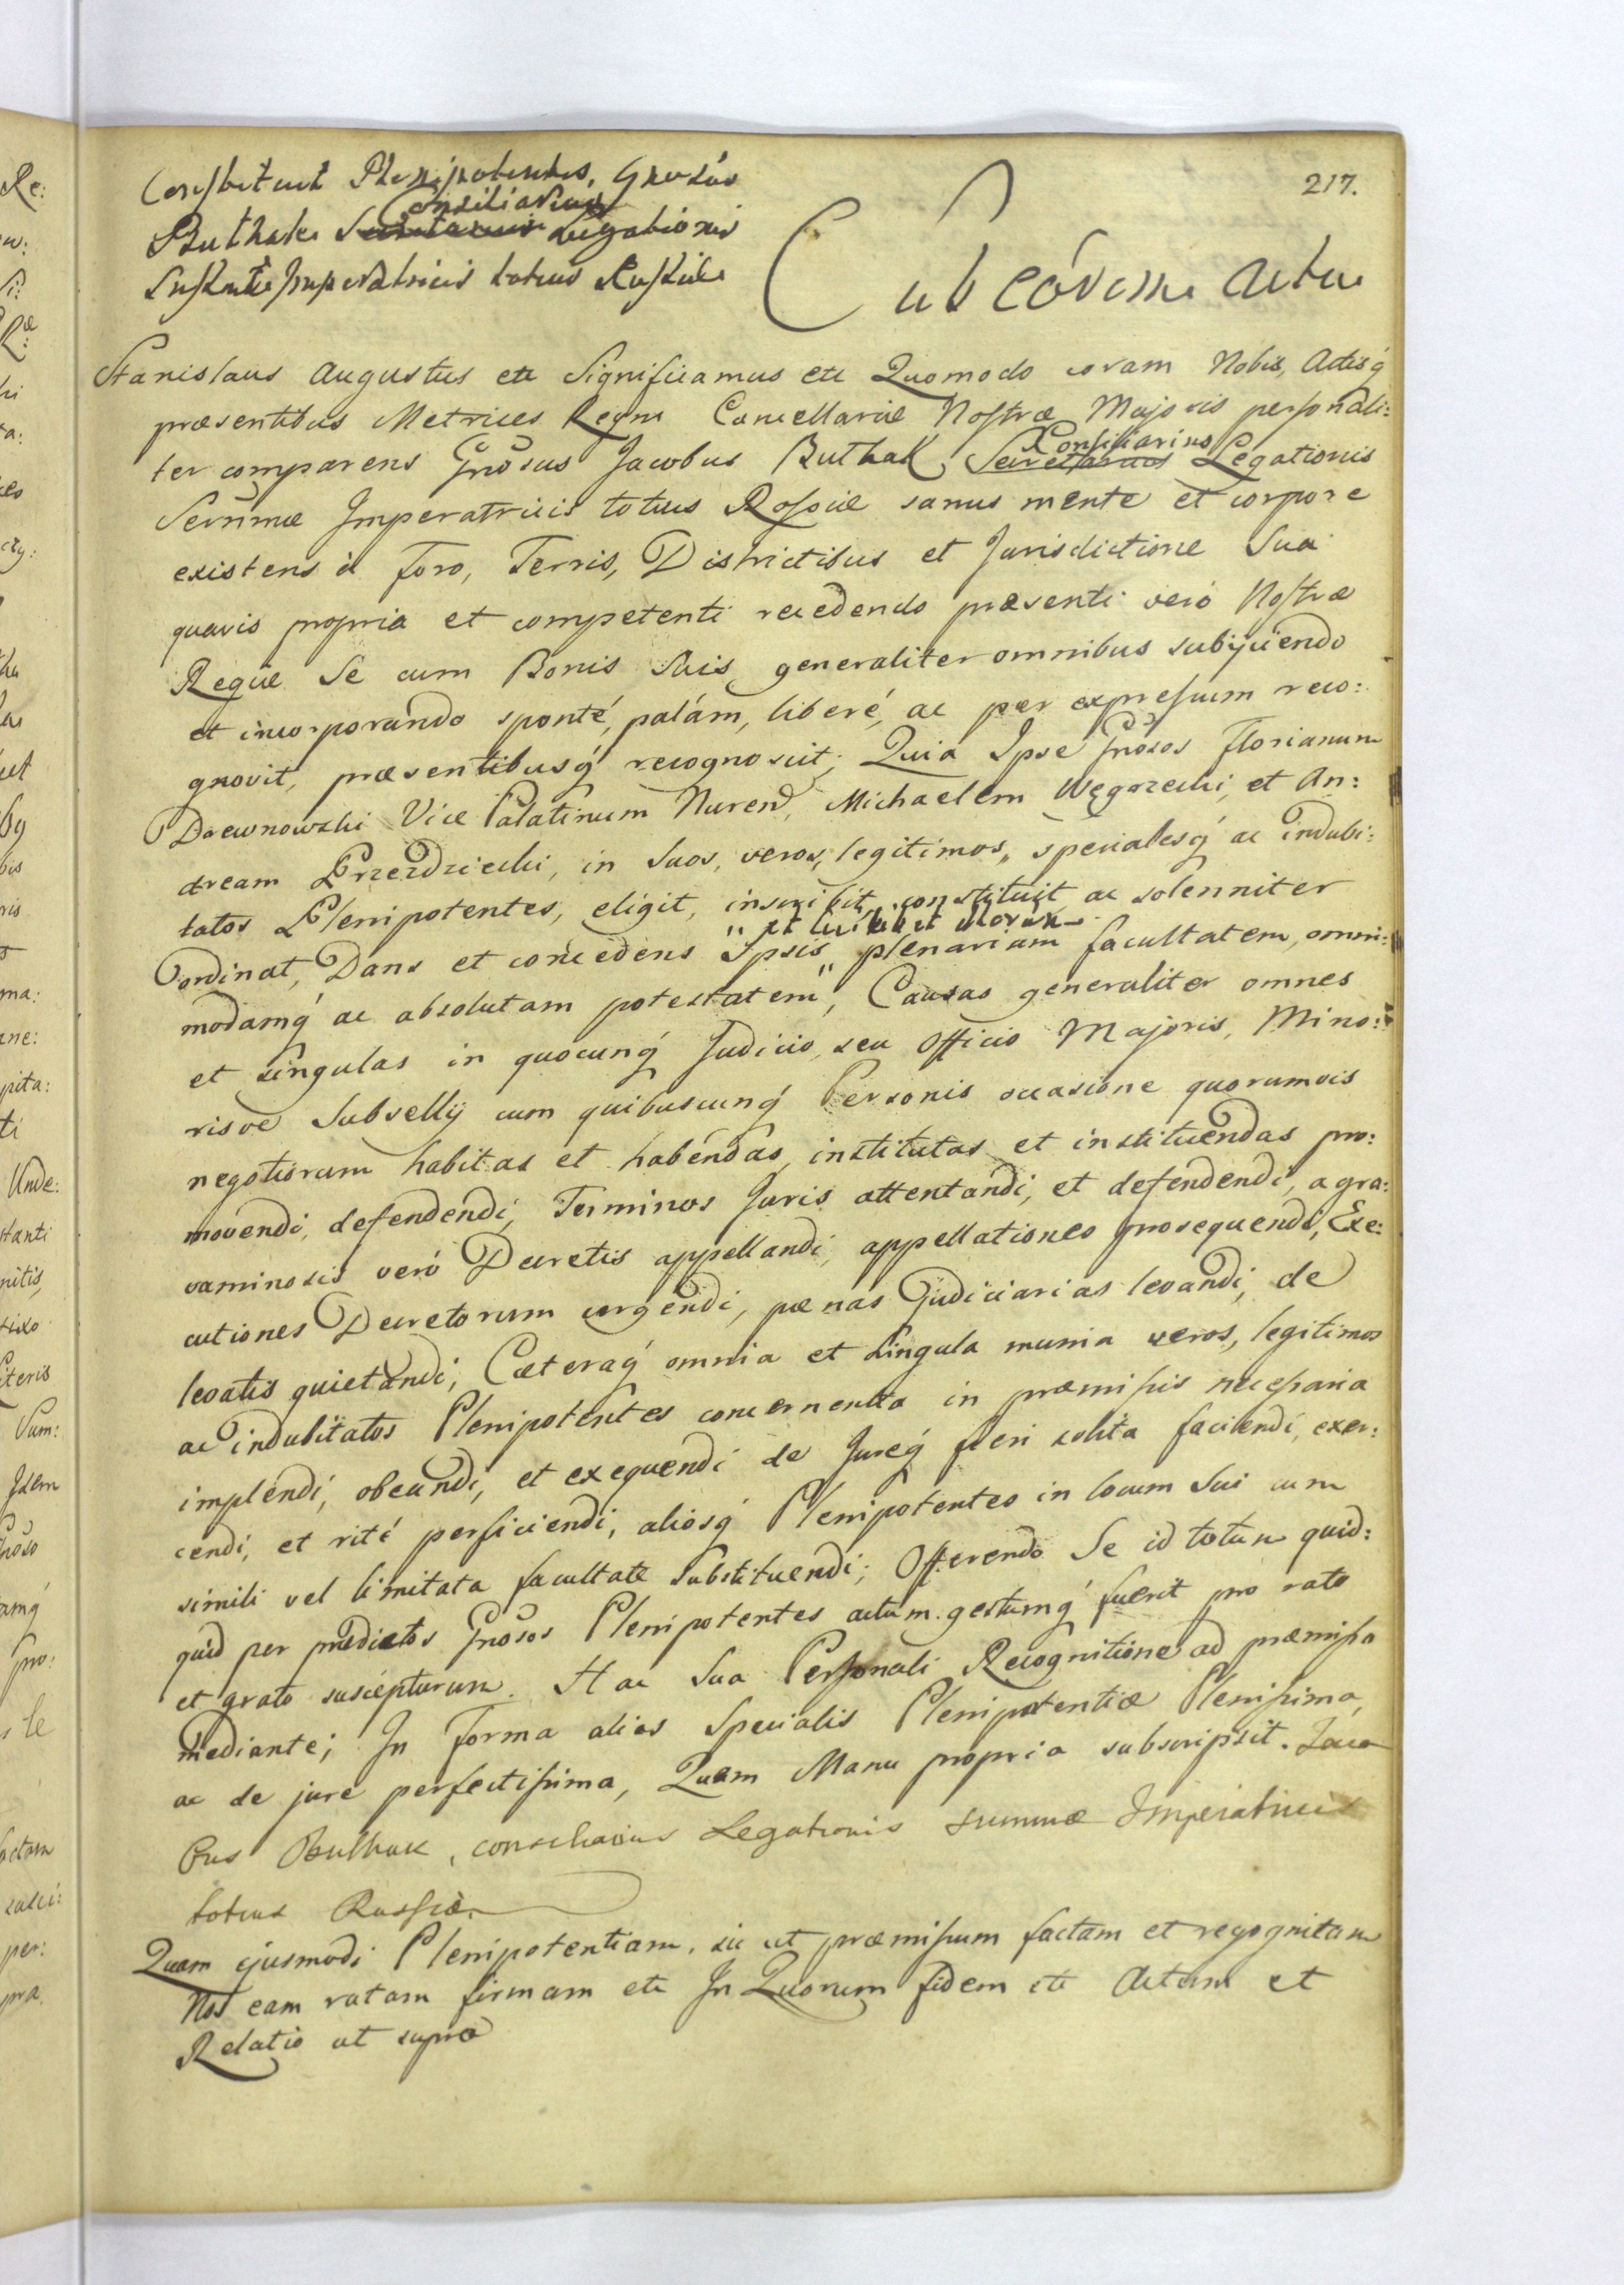 217.
Constituit Plenipotentes, Gnosus
Consiliarius
Buthak Secretarius Legationis
Imperatricis totius Russiae
Sub eodem Actu
Stanislaus Augustus etc Significamus etc Quomodo coram Nobis, Actisq́
præsentibus Metrices Regni Cancellariæ Nostræ Majoris personali:
Consiliarius
ter comparens Gnosus Jacobus Buthak, Secretarius Legationis
Sernmæ Imperatricis totius Rossiæ sanus mente et corpore
existens à Foro, Terris, Districtibus et Jurisdictione Sua
quavis propria et competenti recedendo præsenti verò Nostræ
Regiæ Se cum Bonis Suis generaliter omnibus subijciendo
et incorporando sponté, palám, liberé, ac per expressum reco:
gnovit, præsentibusq́ recognoscit; Quia Ipse Gnosos Florianum
Drewnowski Vice Palatinum Nuren, Michaelem Węgrzecki, et An:
dream Przezdziecki, in Suos, veros, legitimos, specialesq́ ac indubi:
tatos Plenipotentes, eligit, inscribit, constituit, ac solenniter
ordinat, Dans et concedens Ipsis plenariam facultatem, omni:
modamq́ ac absolutam potestatem, Causas generaliter omnes
et singulas in quocunq́ Judicio, seu Officio Majoris, Mino:
risve Subsellij cum quibuscunq́ Personis occasione quorumvis
negotiorum habitas et habendas, institutas et instituendas pro:
movendi, defendendi, Terminos Juris attentandi, et defendendi, a gra:
vaminosis verò Decretis appellandi, appellationes prosequendi, Exe:
cutiones Decretorum urgendi, pœnas judiciarias levandi, de
levatis quietandi, Cæteraq́ omnia et singula munia veros, legitimos
ac indubitatos Plenipotentes concernentia in præmissis necessaria
implendi, obeundi, et exequendi de Jureq́ fieri solita faciendi, exer:
cendi, et rité perficiendi, aliosq́ Plenipotentes in locum Sui cum
simili vel limitata facultate Substituendi; Offerendo Se id totum quid:
quid per prædictos Gnosos Plenipotentes actum gestumq́ fuerit pro rato
et grato suscepturum. Hac Sua Personali Recognitione ad præmissa
mediante; In Forma alias Specialis Plenipotentiæ Plenissima,
ac de jure perfectissima, Quam Manu propria subscripsit. Jaco
bus Buthak, consiliarius Legationis Imperatricis
totius Russiæ.
Quam ejusmodi Plenipotentiam, sic ut præmissum factam et recognitam
Nos eam ratam firmam etc In Quorum fidem etc Actum et
Relatio ut supra